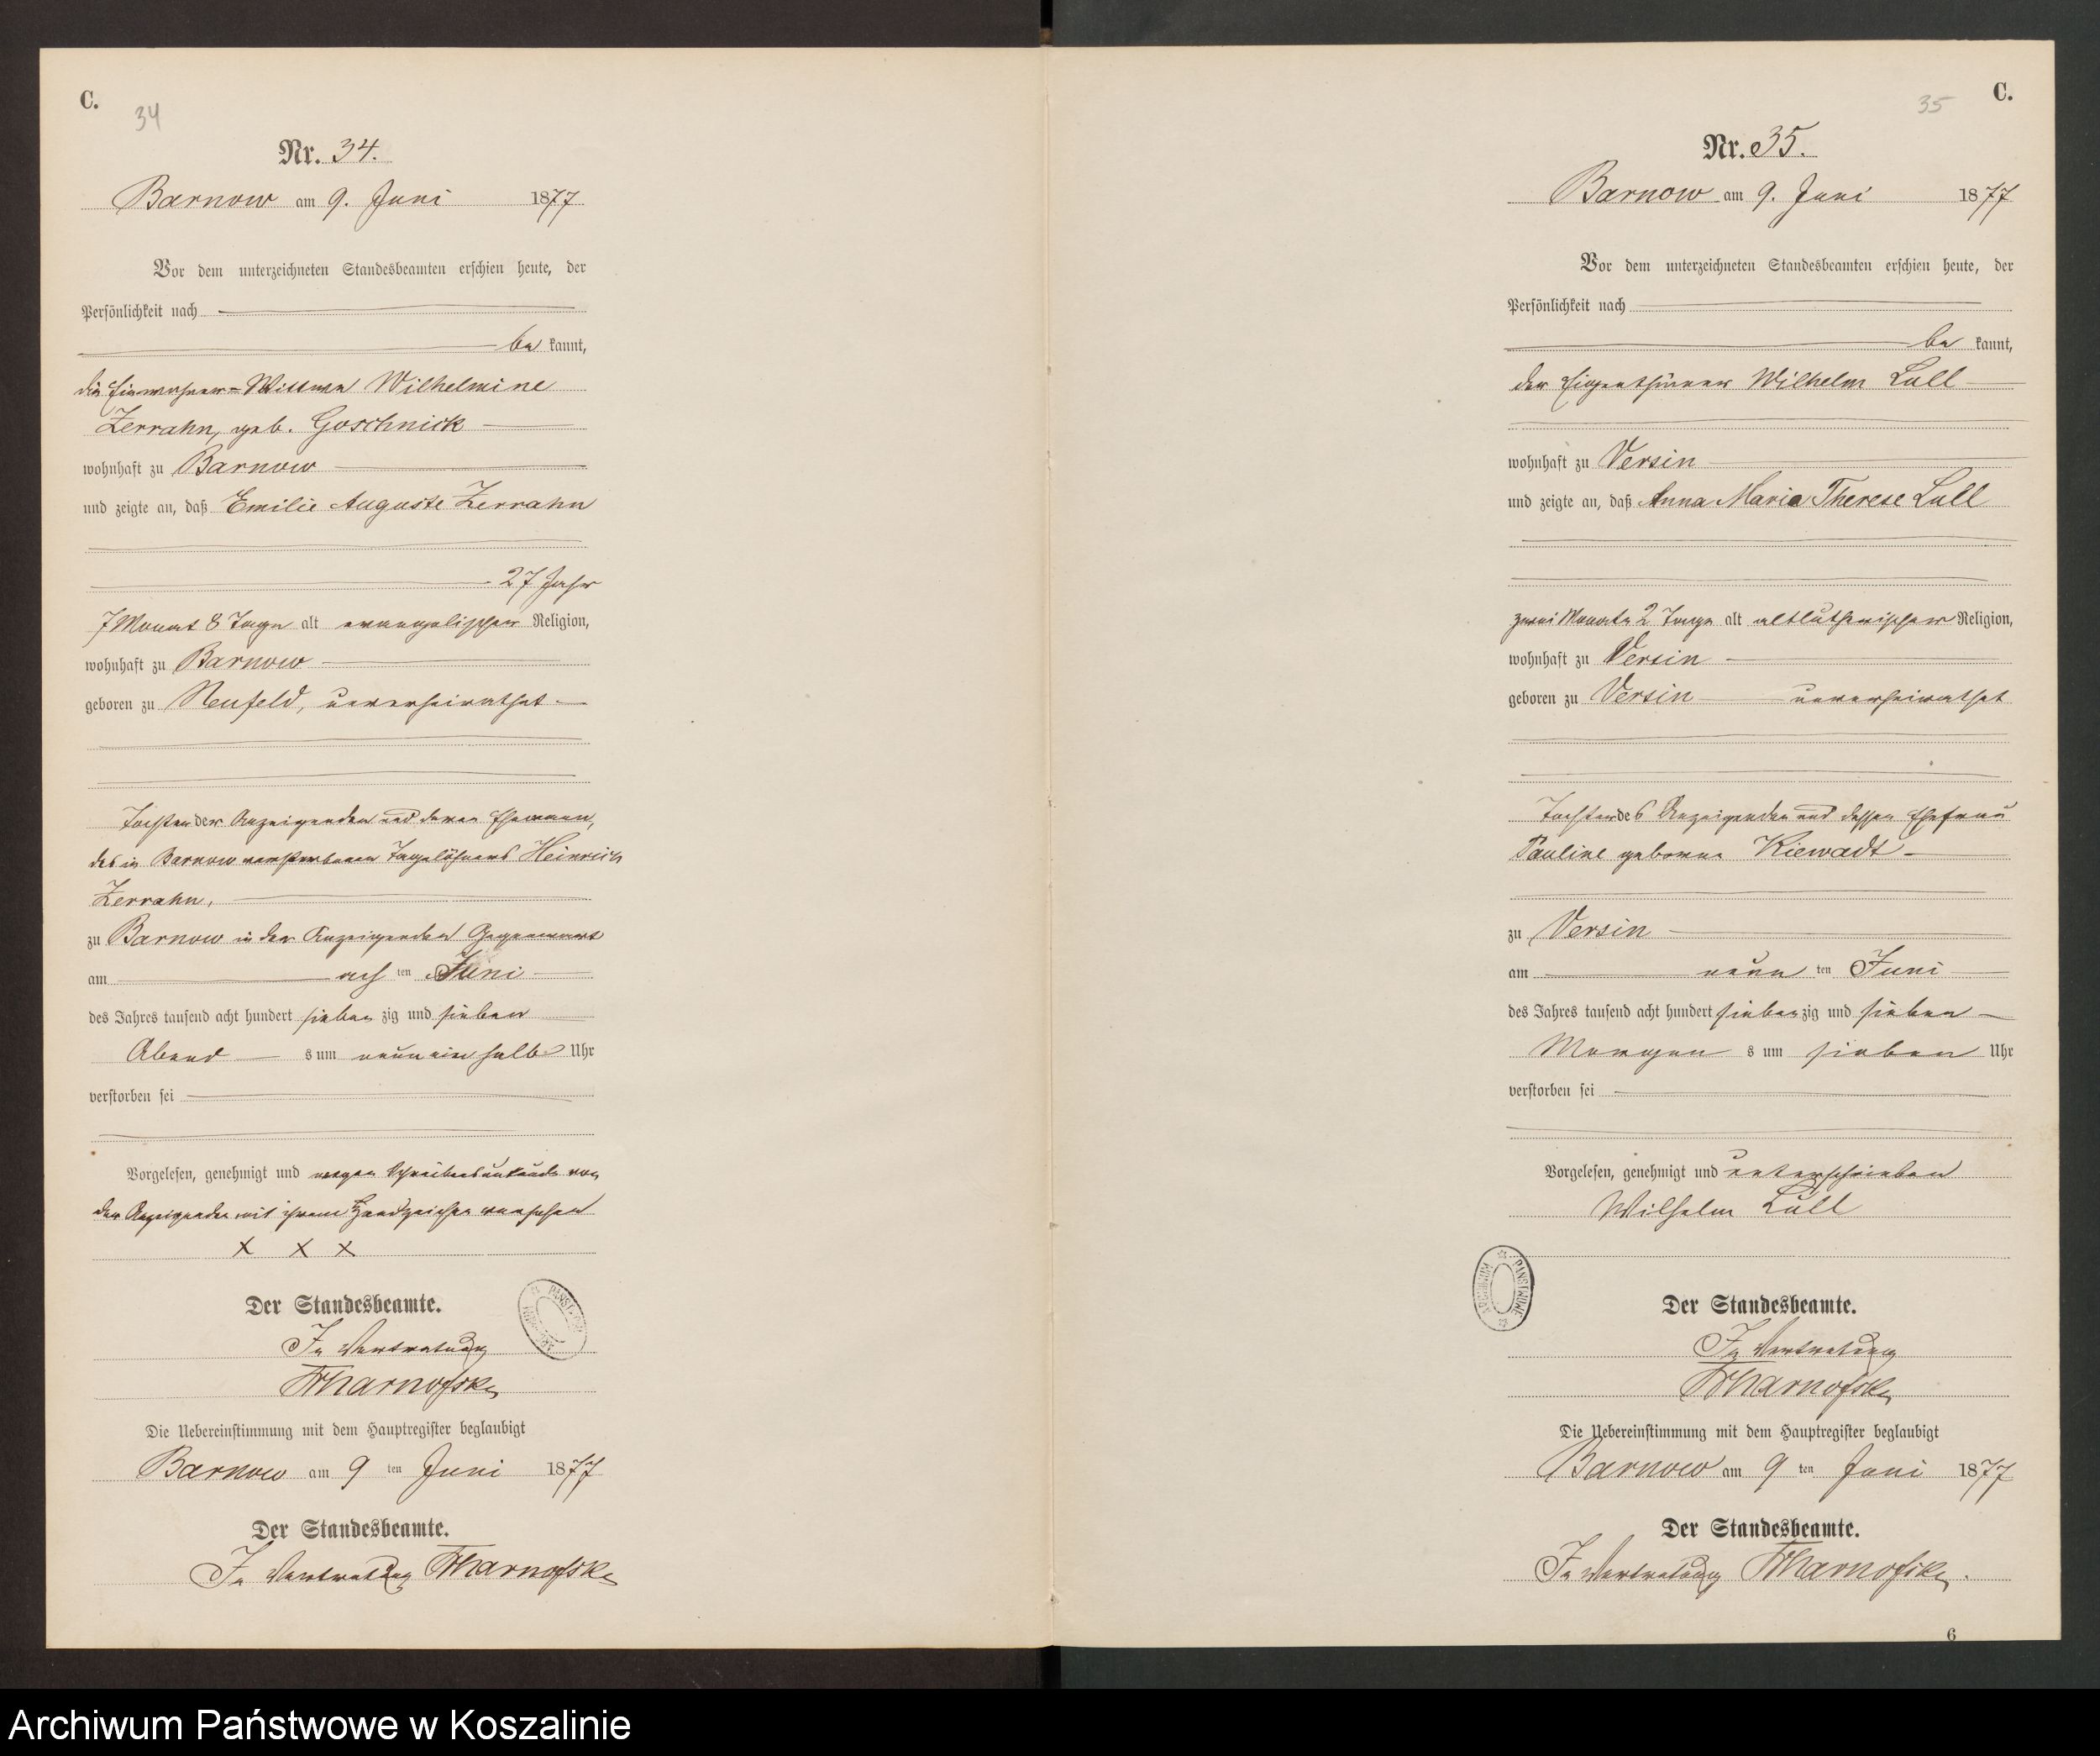 C.
34
Nr. 34.
Barnow am 9. Juni 1877
Vor dem unterzeichneten Standesbeamten erschien heute, der
Persönlichkeit nach
be kannt,
die Einwohner-Wittwe Wilhelmine
Zerrahn, geb. Goschnick
wohnhaft zu Barnow
und zeigte an, daß Emilie Auguste Zerrahn
27 Jahr
7 Monat 8 Tage alt evangelischer Religion,
wohnhaft zu Barnow
geboren zu Neufeld, unverheirathet
Tochter der Anzeigenden und deren Ehemann,
des in Barnow verstorbenen Tagelöhners Heinrich
Zerrahn.
zu Barnow in der Anzeigenden Gegenwart
am acht ten Juni
des Jahres tausend acht hundert sieben zig und sieben
Abend s um neun ein halb Uhr
verstorben sei
Vorgelesen, genehmigt und wegen Schreibensunkunde von
der Anzeigenden mit ihrem Handzeichen versehen
x x x
Der Standesbeamte.
In Vertretung
Die Uebereinstimmung mit dem Hauptregister beglaubigt
Barnow am 9 ten Juni 1877
Der Standesbeamte.
In Vertretung
C.
35
Nr. 35.
Barnow am 9. Juni 1877
Vor dem unterzeichneten Standesbeamten erschien heute, der
Persönlichkeit nach
be kannt,
der Eigenthümer Wilhelm Lüll
wohnhaft zu Versin
und zeigte an, daß Anna Maria Therese Lüll
zwei Monate 2 Tage alt altlutherischer Religion,
wohnhaft zu Versin
geboren zu Versin unverheirathet
Tochter des Anzeigenden und dessen Ehefrau
Pauline geborne Kiewadt
zu Versin
am neun ten Juni
des Jahres tausend acht hundert sieben zig und sieben
Morgen s um sieben Uhr
verstorben sei
Vorgelesen, genehmigt und unterschrieben
Wilhelm Lüll
ARCHIWUM PAŃSTWOWE
Der Standesbeamte.
In Vertretung
Die Uebereinstimmung mit dem Hauptregister beglaubigt
Barnow am 9 ten Juni 1877
Der Standesbeamte.
In Vertretung
6
Archiwum Państwowe w Koszalinie